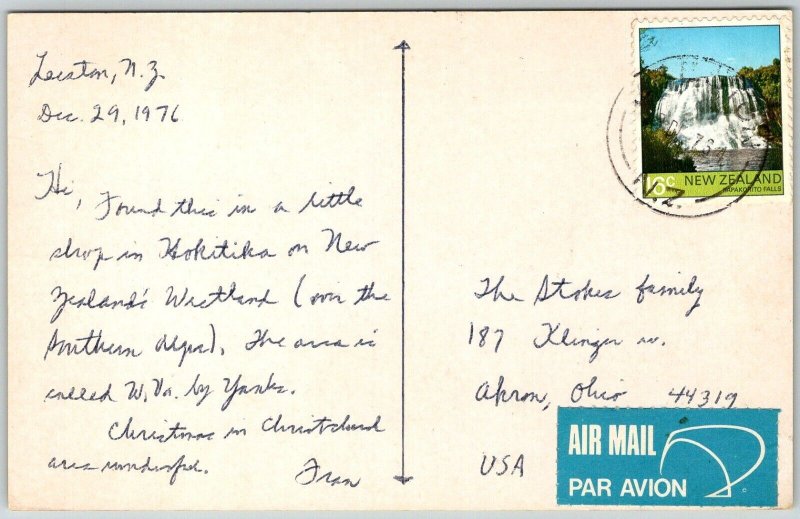 Leeston, N.Z.
Dec. 29, 1976
Hi, Found this in a little
shop in Hokitika on New
Zealand's Westland (over the
Southern Alps). The area is
called W. Va. by Yanks.
Christmas in Christchurch
was wonderful.
Fran
16c NEW ZEALAND
PAPAKORITO FALLS
N.Z.
The Stokes family
187 Klinger av.
Akron, Ohio 44319
USA
AIR MAIL
PAR AVION